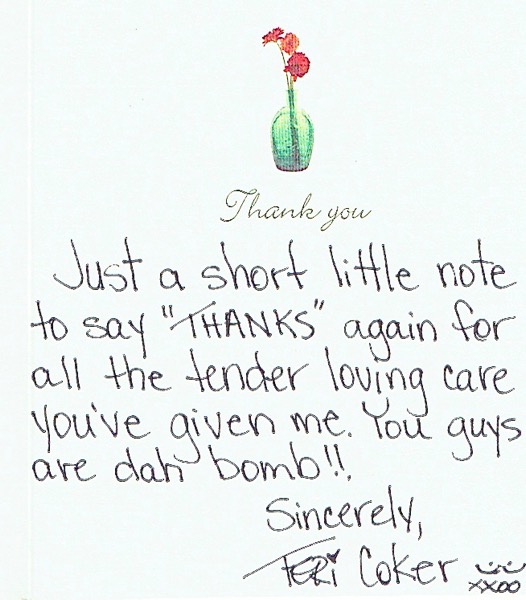 Thank you
Just a short little note
to say "THANKS" again for
all the tender loving care
you've given me. You guys
are dah bomb!!
Sincerely,
Teri Coker
xxoo